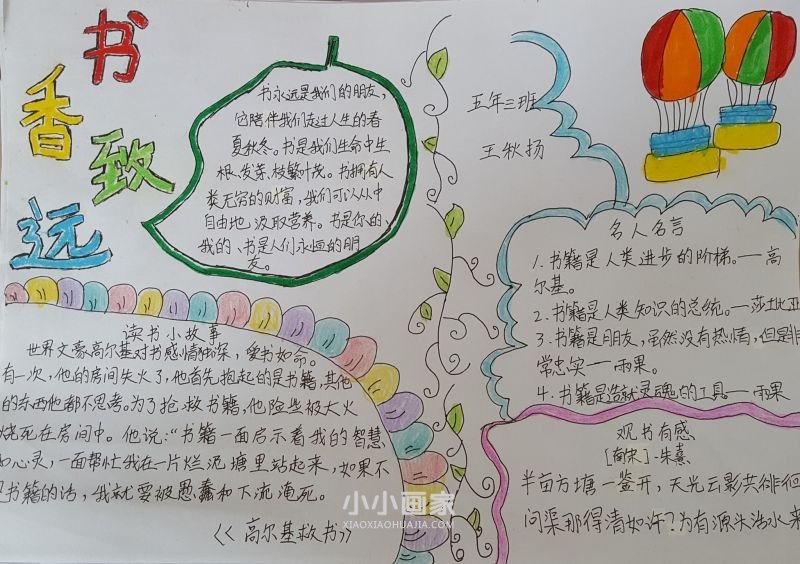 书香致远
书永远是我们的朋友,
它陪伴我们走过人生的春
夏秋冬。书是我们生命中生
根、发芽、枝繁叶茂。书拥有人
类无穷的财富,我们可以从中
自由地汲取营养。书是你的、
我的、书是人们永恒的朋
友。
五年三班
王秋扬
名人名言
1. 书籍是人类进步的阶梯。——高
尔基。
2. 书籍是人类知识的总统。——莎士比亚
3. 书籍是朋友,虽然没有热情,但是非
常忠实——雨果。
4. 书籍是造就灵魂的工具。——雨果
读书小故事
世界文豪高尔基对书感情独深,爱书如命。
有一次,他的房间失火了,他首先抱起的是书籍,其他
的东西他都不思考。为了抢救书籍,他险些被大火
烧死在房间中。他说:“书籍一面启示着我的智慧
和心灵,一面帮忙我在一片烂泥塘里站起来,如果不
是书籍的话,我就要被愚蠢和下流淹死。
<<高尔基救书>>
观书有感
[南宋]—朱熹
半亩方塘一鉴开,天光云影共徘徊
问渠那得清如许?为有源头活水来
小小画家
XIAOXIAOHUAJIA.COM